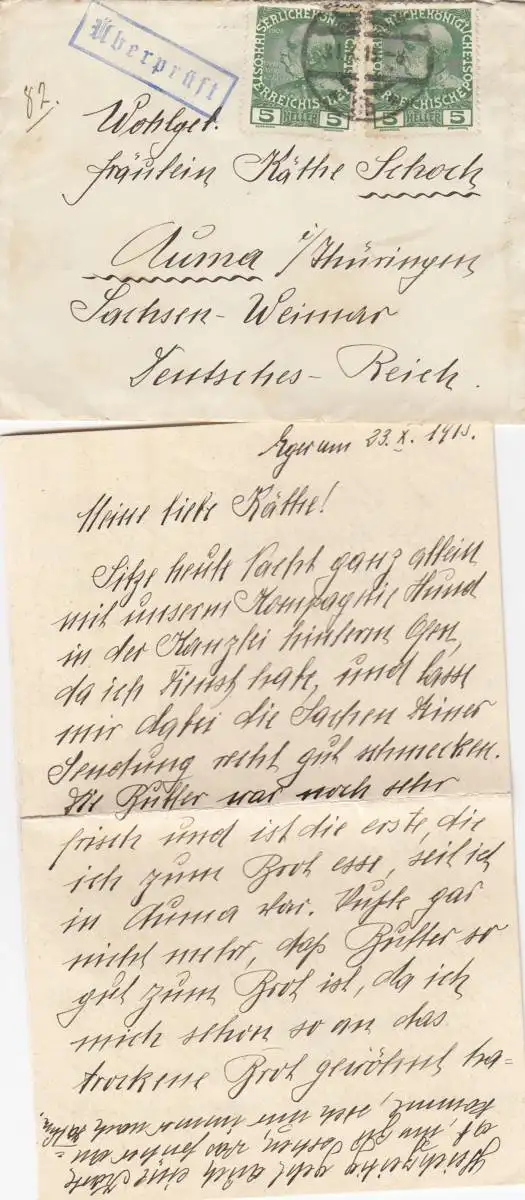 Überprüft
KAISERLICHE KÖNIGLICHE
ÖSTERREICHISCHE POST
5 HELLER 5
5 HELLER 5
87.
Wohlgeb.
Fräulein Käthe Schoch
Auma i/Thüringen
Sachsen-Weimar
Deutsches-Reich.
23.X.1915.
Meine liebe Käthe!
Sitze heute Nacht ganz allein
mit unserm Kompagnie Hund
in der Kanzlei hinterm Ofen,
da ich Dienst habe, und lasse
mir dabei die Sachen Deiner
Sendung recht gut schmecken.
Die Butter war noch sehr
frisch und ist die erste, die
ich zum Brot esse, seit ich
in Auma war. Wußte gar
nicht mehr, daß Butter so
gut zum Brot ist, da ich
mich schon so an das
trockene Brot gewöhnt ha=
Gleichzeitig geht auch eine Karte
ab,
kommt,